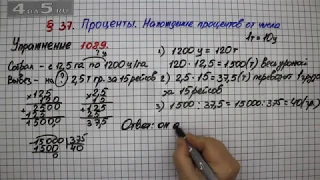 4ADS.RU
§ 37. Проценты. Нахождение процентов от числа
Упражнение 1029.
1т = 10ц
? ц
Собрал - с 12,5 га по 1200 ц/га
Вывез - на ? 2,5 т гр. за 15 рейсов
1) 1200 ц = 120 т
120 · 12,5 = 1500 (т) весь урожай
2) 2,5 · 15 = 37,5 (т) перевозит 1 грузов.
за 15 рейсов
3) 1500 : 37,5 = 15000 : 375 = 40 (гр.)
× 12,5
120
+ 2500
125
1500,0
× 2,5
15
+ 125
25
37,5
15000 | 375
1500 40
0
Ответ: он